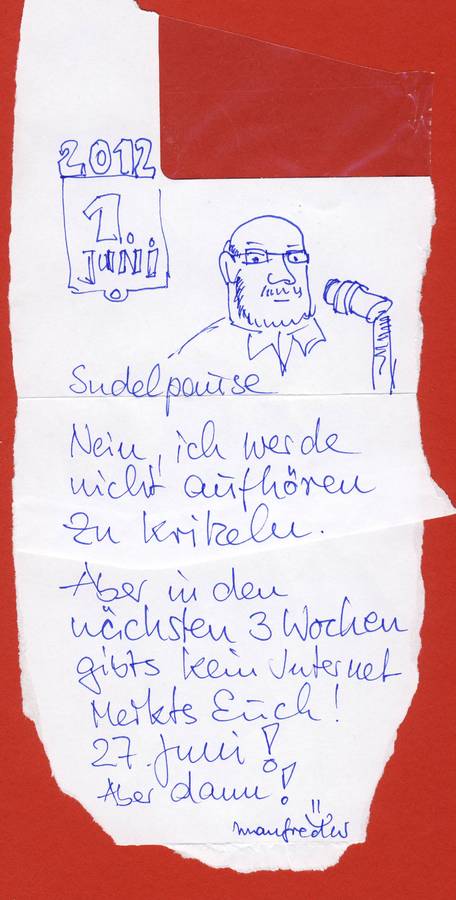 2012
1.
JUNI
Sudelpause
Nein, ich werde
nicht aufhören
zu krikeln.
Aber in den
nächsten 3 Wochen
gibts kein Internet
Merkts Euch!
27. Juni!
Aber dann!